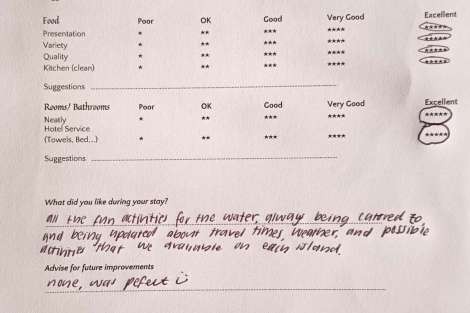 Food Poor OK Good Very Good Excellent
Presentation * ** *** **** *****
Variety * ** *** **** *****
Quality * ** *** **** *****
Kitchen (clean) * ** *** **** *****
Suggestions
Rooms/ Bathrooms Poor OK Good Very Good Excellent
Neatly * ** *** **** *****
Hotel Service
(Towels, Bed...) * ** *** **** *****
Suggestions
What did you like during your stay?
all the fun activities for the water, alway being catered to
and being updated about travel times, weather, and possible
activities that we available on each island.
Advise for future improvements
none, was pefect